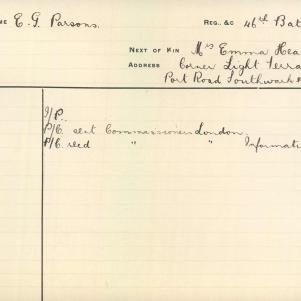 ME E. G. Parsons. REG., &C 46th Bat
NEXT OF KIN Mrs Emma Hea
ADDRESS Corner Light Terra
Port Road Southwark
I/P.
P/C. sent Commissioner London.
P/C. recd " " Informati